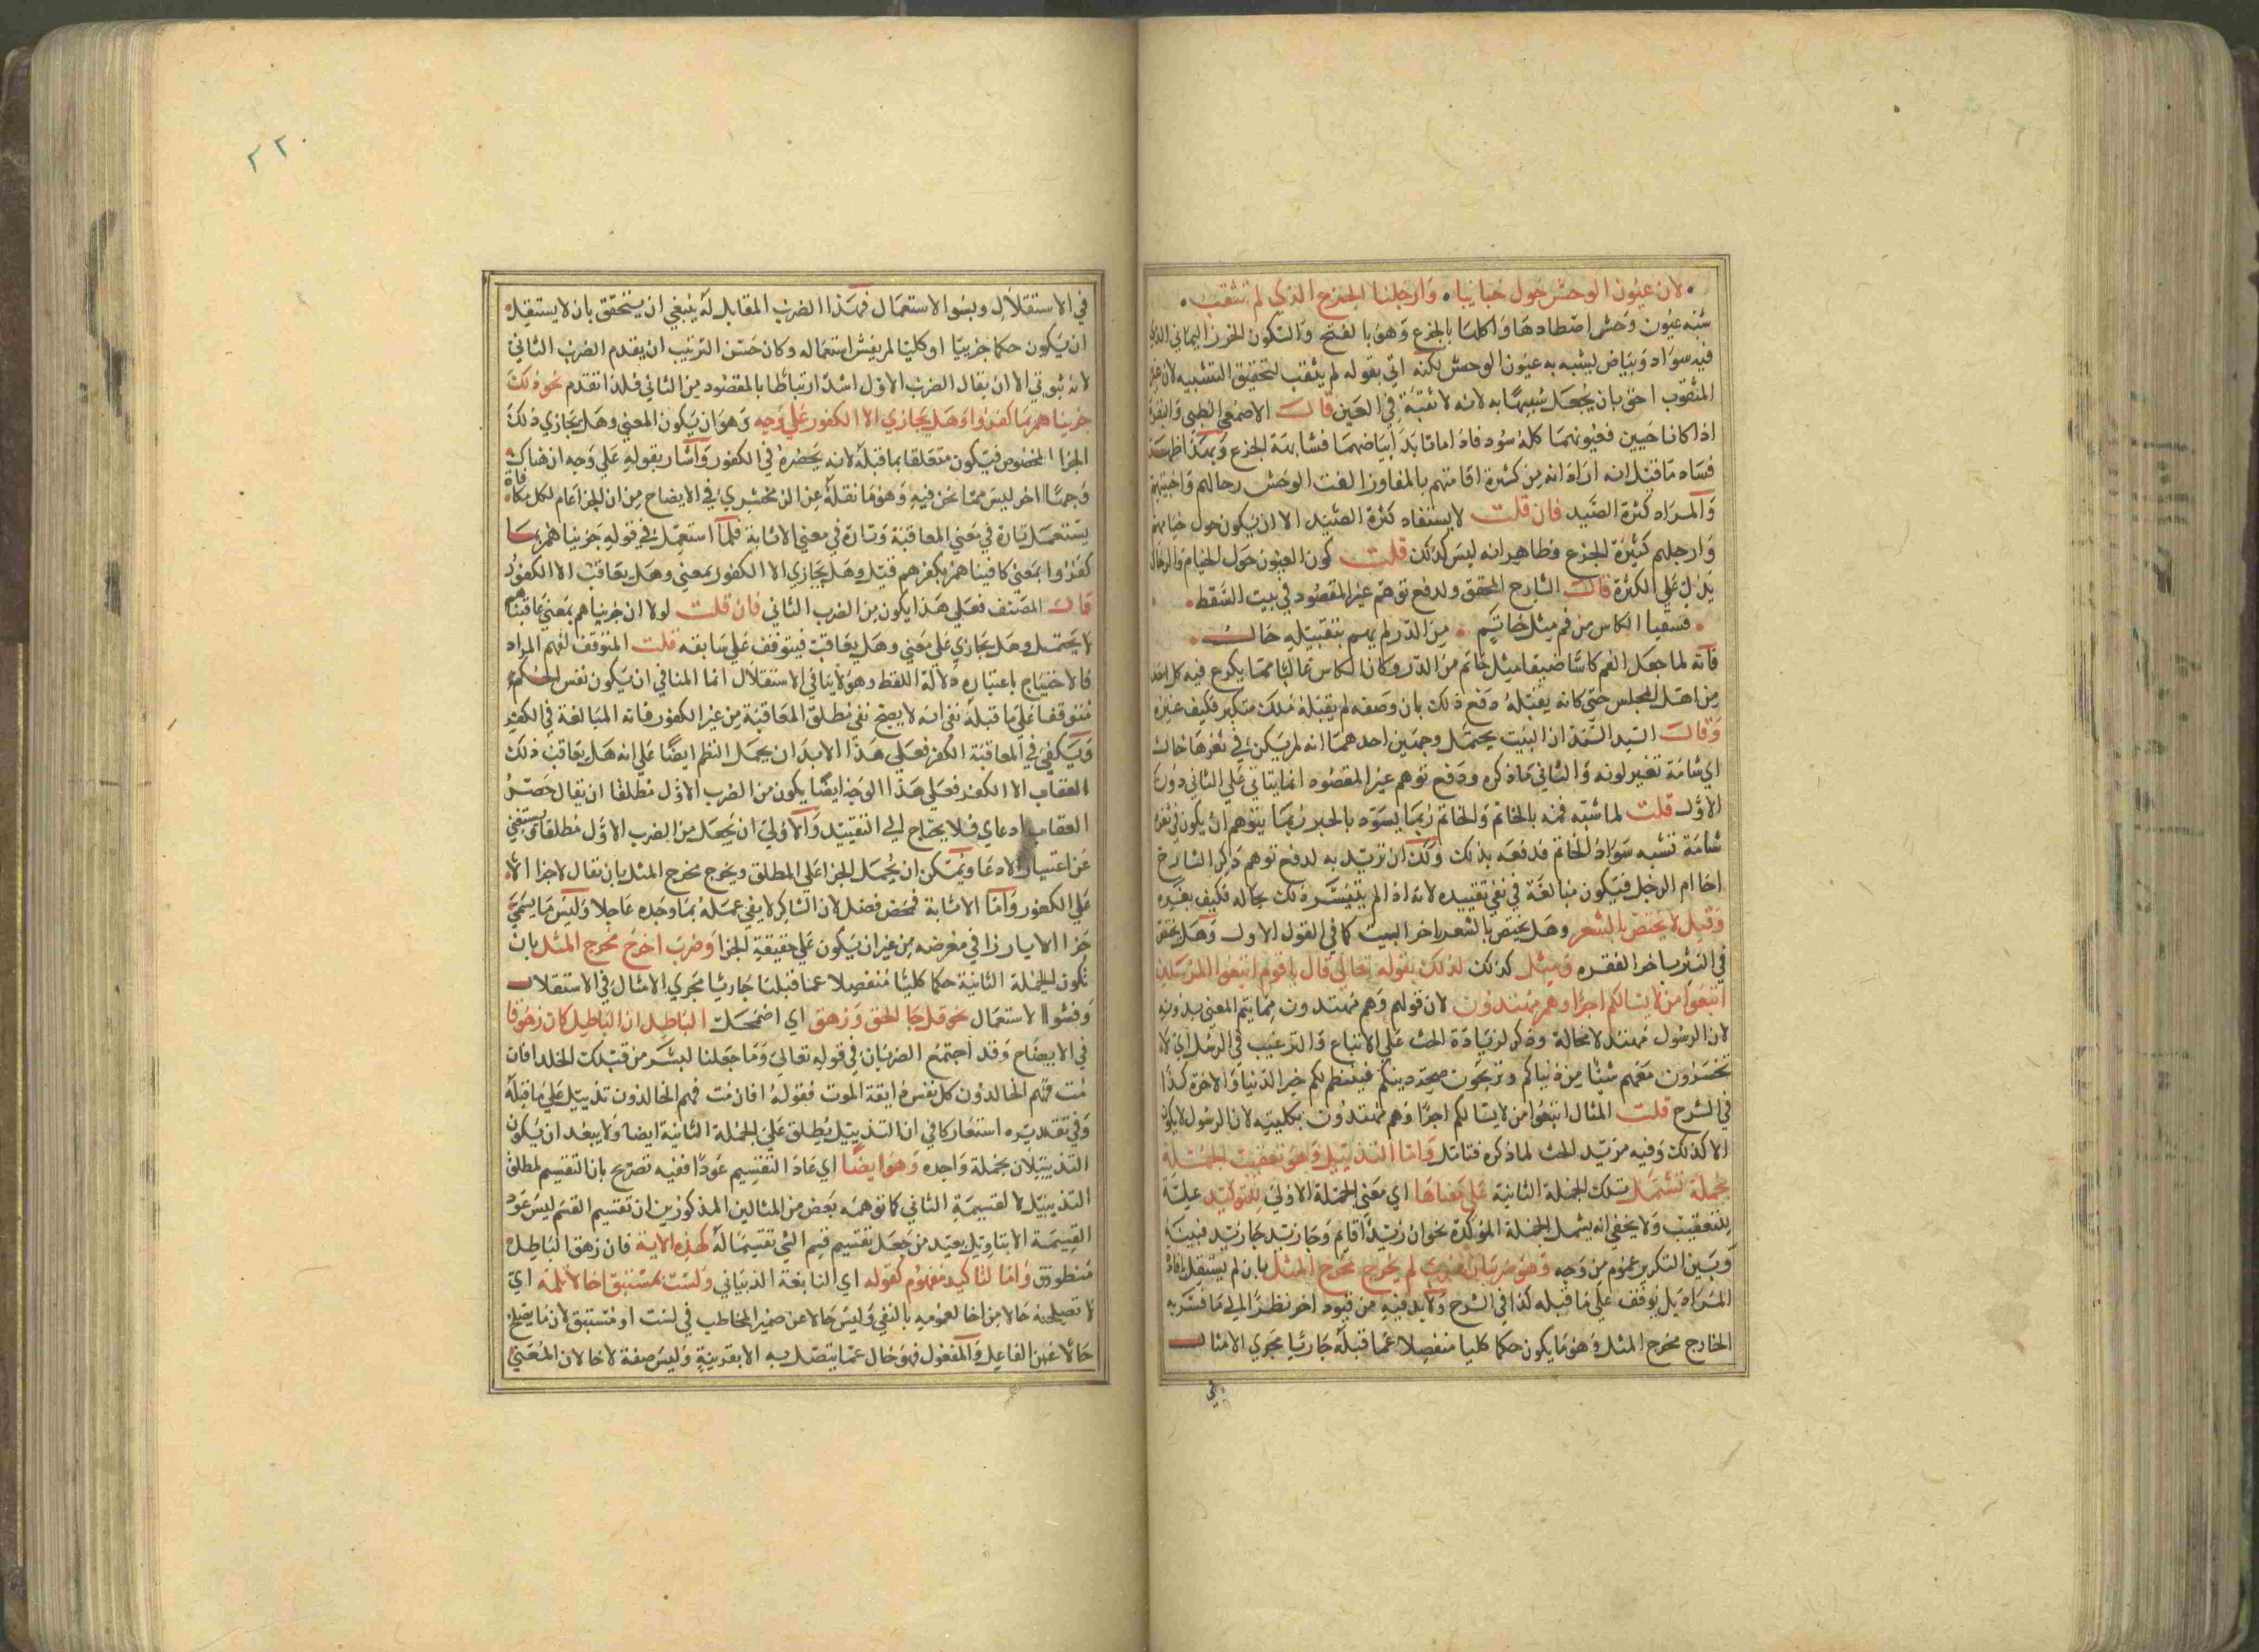 لان عيون الوحش حول خبايبا • وارحلنا الجزع الذي لم يثقب •
شبه عيون وحش اصطادها واكلها بالجزع وهو بالفتح والسكون الخرز اليماني الذي
فيه سواد وبياض ليشبه به عيون الوحش لكنه اتي بقوله لم يثقب لتحقيق التشبيه لان غير
المثقوب احق بان يجعل شبيها به لانه لا ثقبة في العين قال الاصمعي الظبي والبقرة
اذا كانا حيين فعيونهما كله سود فاذا ماتا بدا بياضهما فشابهة الجزع وبهذا ظهر
فساد ما قيل انه اراد انه من كثرة اقامتهم بالمفاوز الفت الوحش رحالهم واخبيتهم
والمراد كثرة الصيد فان قلت لا يستفاد كثرة الصيد الا ان يكون حول خيامهم
وارحلهم كثيرة الجزع وظاهر انه ليس كذلك قلت كون العيون حول الخيام والرحال
يدل علي الكثرة قال الشارح المحقق ولدفع توهم غير المقصود في بيت السقط •
• فسقيا الكاس من فم مثل خاتم • من الدر لم يهم بتقبيله خال •
فانه لما جعل الفم كاسا ضيقا مثل خاتم من الدر وكان الكاس غالبا مما يكرع فيه كل احد
من اهل المجلس حتي كانه يقبله دفع ذلك بان وصفه لم يقبله ملك متكبر فكيف غيره
وقال السيد السند ان البيت يحتمل وجهين احدهما انه لم يكن في ثغرها خال
اي شامة تغير لونه والثاني ما ذكره ودفع توهم غير المقصود انما يتاتي علي الثاني دون
الاول قلت لما شبه فمه بالخاتم والخاتم ربما يسود بالحبر ربما يتوهم ان يكون في ثغره
شامة تشبه سواد الخاتم فدفعه بذلك ولك ان تزيد به لدفع توهم ذكر الشارح
اخا ام الرجل فيكون مبالغة في نفي تقبيده لانه اذا لم يتيسر ذلك بخاله فكيف بغيره
وقيل لا يختص بالشعر وهل يختص بالشعر باخر البيت كما في القول الاول وهل يختص
في النثر باخر الفقره ومثل كذلك لذلك بقوله تعالي قال يا قوم اتبعوا المرسلين
اتبعوا من لا يسالكم اجرا وهم مهتدون لان قولهم وهم مهتدون مما يتم المعني بدونه
لان الرسول مهتد لا محالة وذكر لزيادة الحث علي الاتباع والترغيب في الرسل اي لا
تخسرون معهم شيئا من دنياكم وتربحون صحة دينكم فينتظم لكم خير الدنيا والاخرة كذا
في الشرح قلت المثال اتبعوا من لا يسالكم اجرا وهم مهتدون بكليته لان الرسول لا يكون
الا كذلك وفيه مزيد الحث لما ذكره فتامل واما التذييل وهو تعقيب الجملة
بجملة تشتمل تلك الجملة الثانية علي معناها اي معني الجملة الاولي للتوكيد علية
للتعقيب ولا يخفي انه يشمل الجملة المؤكدة نحو ان زيدا قايم وجا زيد جا زيد فبينه
وبين التكرير عموم من وجه وهو ضربان ضرب لم يخرج مخرج المثل بان لم يستقل بافادة
المراد بل توقف علي ما قبله كذا في الشرح ولا بد فيه من قيود اخر نظرا الي ما فسر به
الخارج مخرج المثل وهو ما يكون حكما كليا منفصلا عما قبله جاريا مجري الامثال
في
٢٢٠
في الاستقلال وبسو الاستعمال فهذا الضرب المقابل له ينبغي ان يتحقق بان لا يستقل
ان يكون حكما جزييا او كليا لم يفش استعماله وكان حسن الترتيب ان يقدم الضرب الثاني
لانه ثبوتي الا ان يقال الضرب الاول اشد ارتباطا بالمقصود من الثاني فلذا تقدم نحو ذلك
جزيناهم بما كفروا وهل يجازي الا الكفور علي وجه وهو ان يكون المعني وهل يجازي ذلك
الجزا المخصوص فيكون متعلقا بما قبله لانه يحصره في الكفور واشار بقوله علي وجه ان هناك
وجها اخر ليس مما نحن فيه وهو ما نقله عن الزمخشري في الايضاح من ان الجزا عام لكل مكافاة
يستعمل تارة في معني المعاقبة وتارة في معني الاثابة فلما استعمل في قوله جزيناهم بما
كفروا بمعني كافيناهم بكفرهم قيل وهل يجازي الا الكفور بمعني وهل يعاقب الا الكفور
قال المصنف فعلي هذا يكون من الضرب الثاني فان قلت لولا ان جزيناهم بمعني عاقبناهم
لا يحتمل وهل يجازي علي معني وهل يعاقب فيتوقف علي سابقه قلت المتوقف لفهم المراد
فالاحتياج باعتباره دلالة اللفظ وهو لا ينافي الاستقلال انما المنافي ان يكون نفس الحكم
متوقفا علي ما قبله نفي انه لا يصح نفي مطلق المعاقبة من غير الكفور فانه المبالغة في الكفر
ويكفي في المعاقبة الكفر فعلي هذا الابد ان يحمل النظم ايضا علي انه هل يعاقب ذلك
العقاب الا الكفور فعلي هذا الوجه ايضا يكون من الضرب الاول مطلقا ان يقال حصر
العقاب ادعاي فلا يحتاج الي التقييد والاولي ان يجعل من الضرب الاول مطلقا يستغني
عن اعتبار الادعا ويمكن ان يحمل الجزا علي المطلق ويخرج مخرج المثل بان يقال لا جزا الا
علي الكفور واما الاثابة فمحض فضل لان الشاكر لا يفي عمله بما وجده عاجلا وليس ما يسمي
جزا الا يبارزا في معرضه من غير ان يكون علي حقيقية الجزا وضرب اخرج مخرج المثل بان
تكون الجملة الثانية حكما كليا منفصلا عما قبلها جاريا مجري الامثال في الاستقلال
وفشو الاستعمال نحو قل جا الحق وزهق اي اضمحل الباطل ان الباطل كان زهوقا
في الايضاح وقد اجتمع الضربان في قوله تعالي وما جعلنا لبشر من قبلك الخلد افان
مت فهم الخالدون كل نفس ذايقة الموت فقوله افان مت فهم الخالدون تذييل علي ما قبله
وفي تقديره استغار كافي ان التذييل يطلق علي الجملة الثانية ايضا ولا يبعد ان يكون
التذييلان بجملة واحده وهو ايضا اي عاد التقسيم عودا ففيه تصريح بان التقسيم لمطلق
التذييل لا لقسيمة الثاني كما توهمه بعض من المثالين المذكورين ان تقسيم القسم ليس عود
القسيمة الا بتاويل بعيد من جعل تقسيم قسم الشي تقسيما له كهذه الاية فان زهق الباطل
منطوق واما لتاكيد مفهوم كقوله اي النابغة الذبياني ولست بمستبق اخا لا تلمه اي
لا تصلحه حالا من اخا لعمومه بالنفي وليس حالا عن ضمير المخاطب في لست او مستبق لان ما يصلح
حالا عن الفاعل والمفعول فهو حال عما يتصل به الا بقرينة وليس صفة لاخا لان المعني